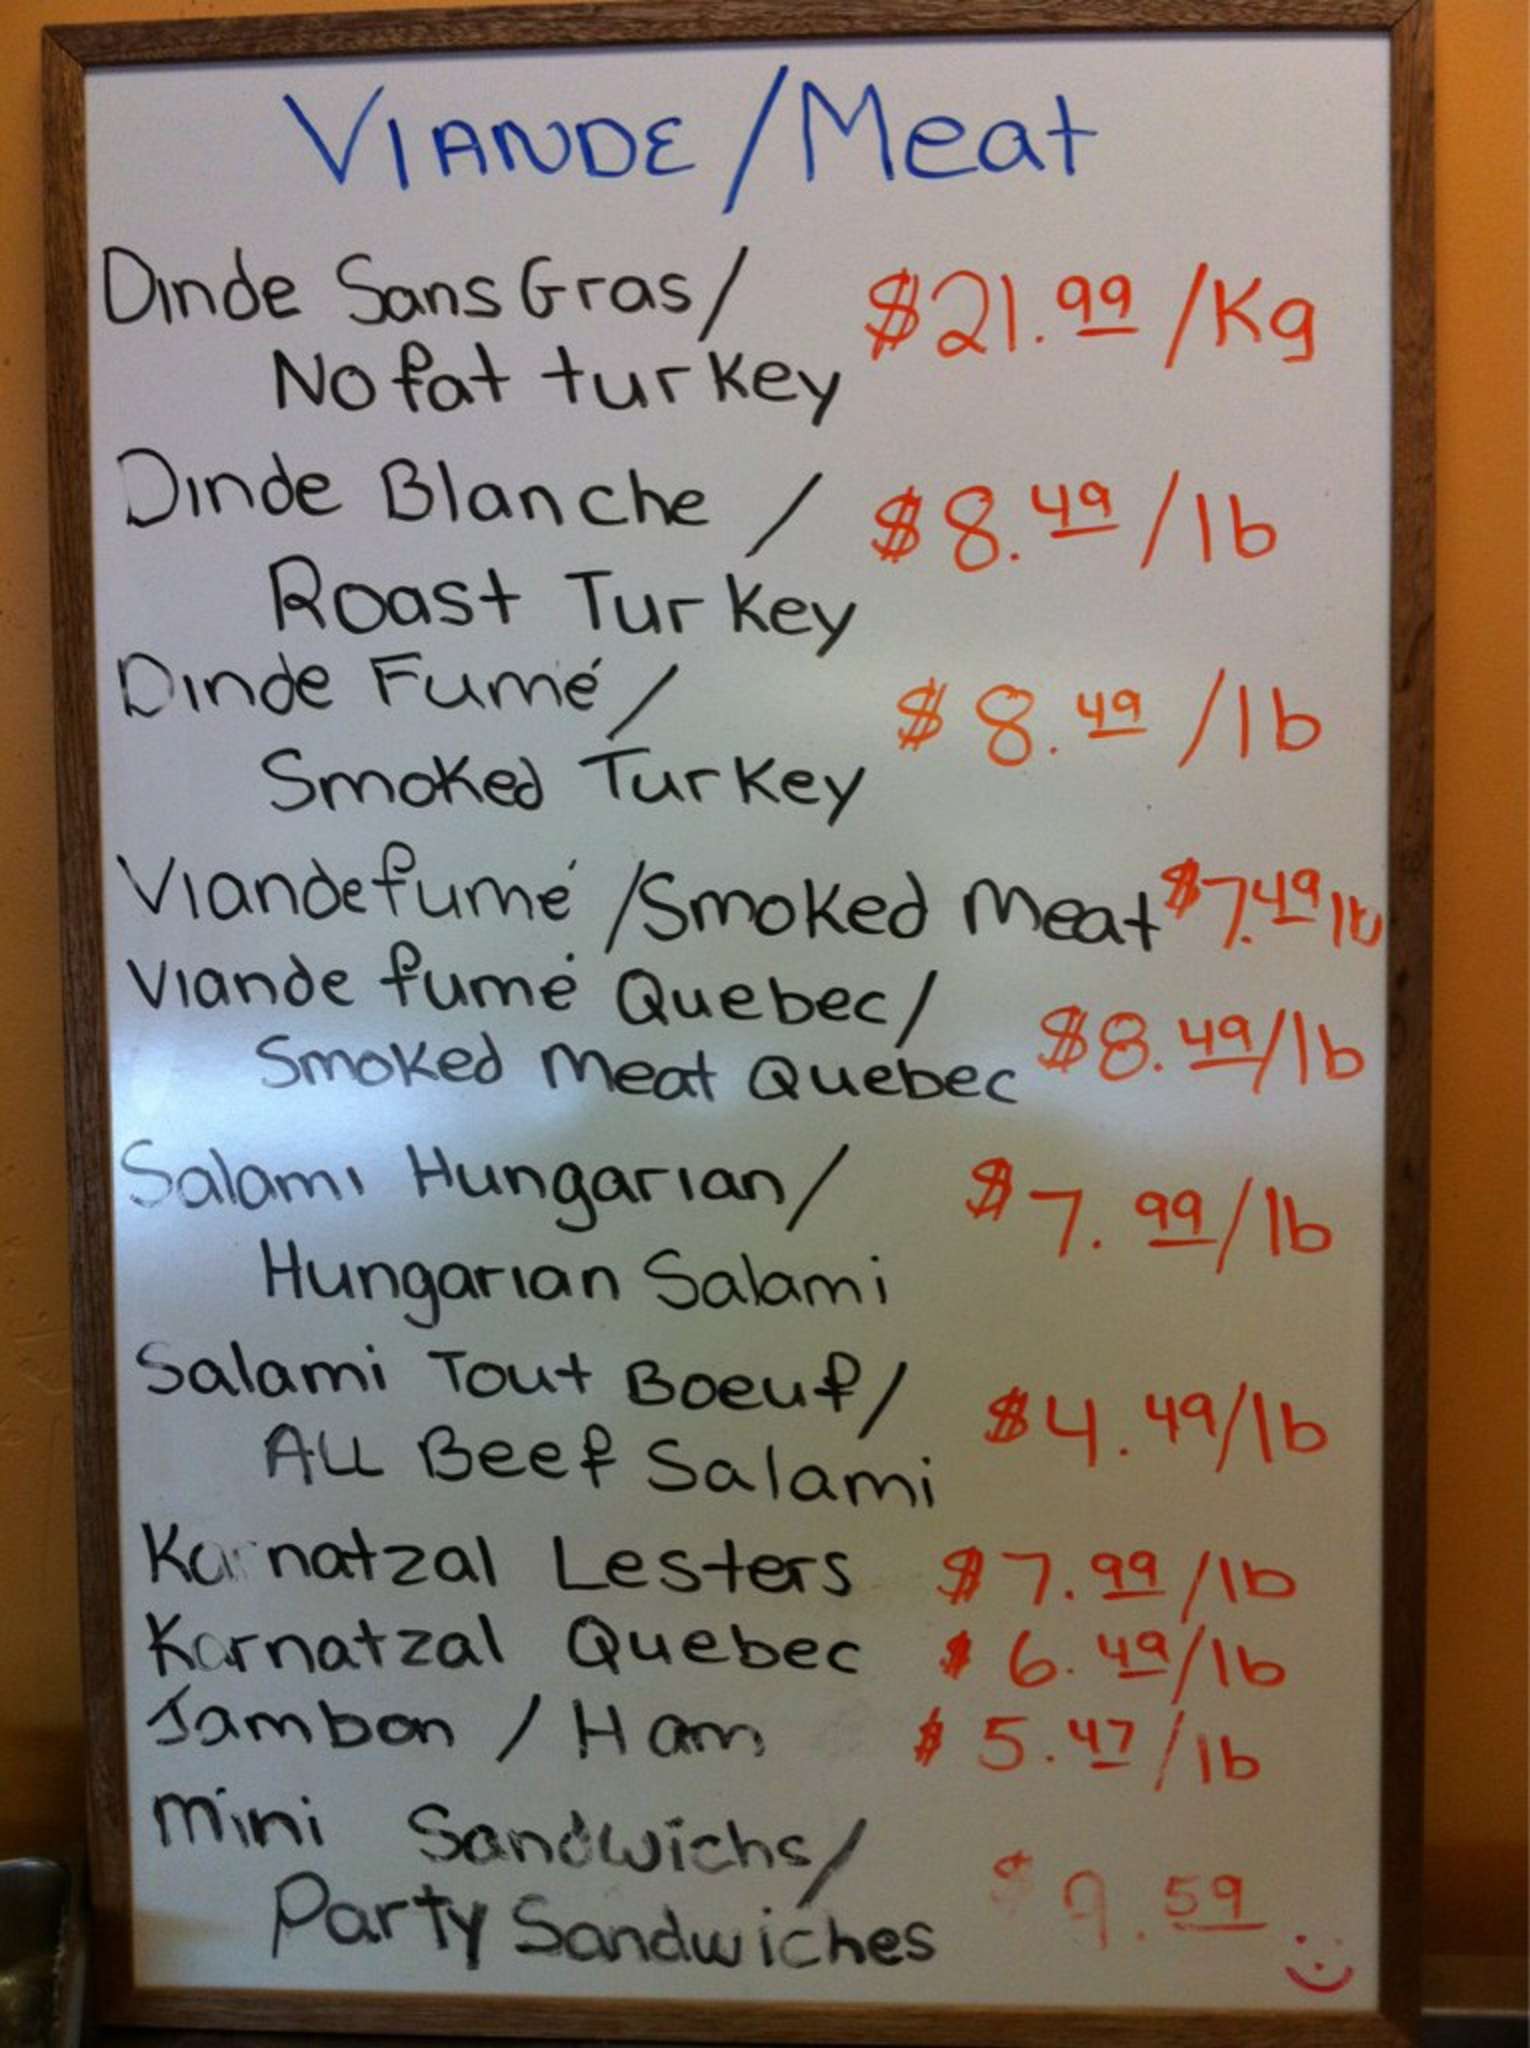 VIANDE/Meat
Dinde Sans Gras/ $21.99/Kg
No fat turkey
Dinde Blanche / $8.49/lb
Roast Turkey
Dinde Fumé/ $8.49/lb
Smoked Turkey
Viande fumé /Smoked Meat $7.49 lb
Viande fumé Quebec/ $8.49/lb
Smoked Meat Quebec
Salami Hungarian/ $7.99/lb
Hungarian Salami
Salami Tout Boeuf/ $4.49/lb
All Beef Salami
Karnatzal Lesters $7.99/lb
Karnatzal Quebec $6.49/lb
Jambon / Ham $5.47/lb
Mini Sandwichs/ $9.59
Party Sandwiches